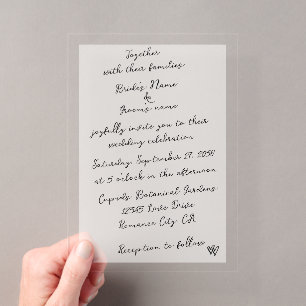 Together
with their families
Bride's Name
&
Groom's name
joyfully invite you to their
wedding celebration
Saturday, September 27, 20XX
at 5 o'clock in the afternoon
Cupids Botanical Gardens
12345 Love Drive
Romance City, CA
Reception to follow